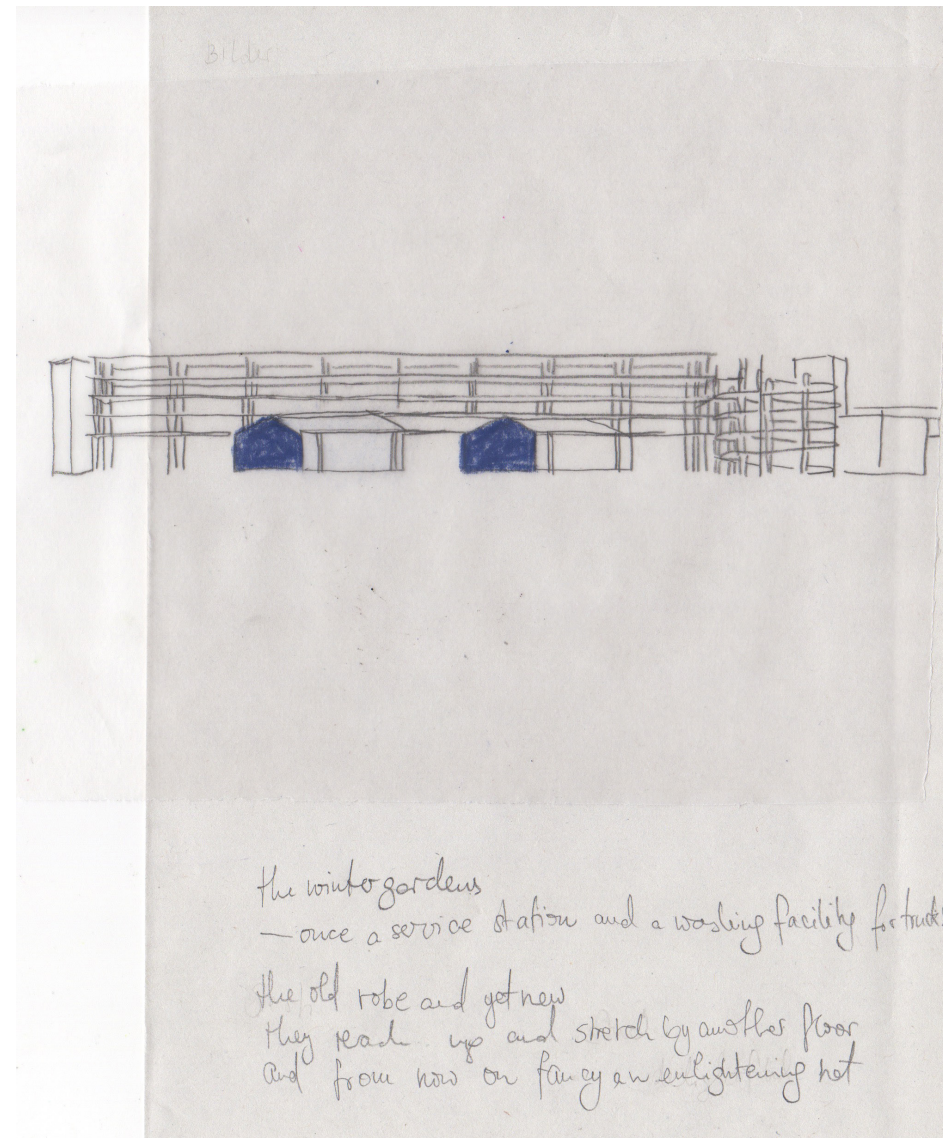 Bilder
the wintergardens
— once a service station and a washing facility for trucks
the old robe and yet new
they reach up and stretch by another floor
and from now on fancy an enlightening hat